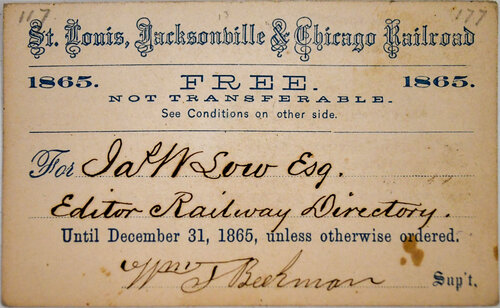 117 177
St. Louis, Jacksonville & Chicago Railroad
1865. FREE. 1865.
NOT TRANSFERABLE.
See Conditions on other side.
For Jas W Low Esq.
Editor Railway Directory.
Until December 31, 1865, unless otherwise ordered.
Wm S Beekman Sup't.